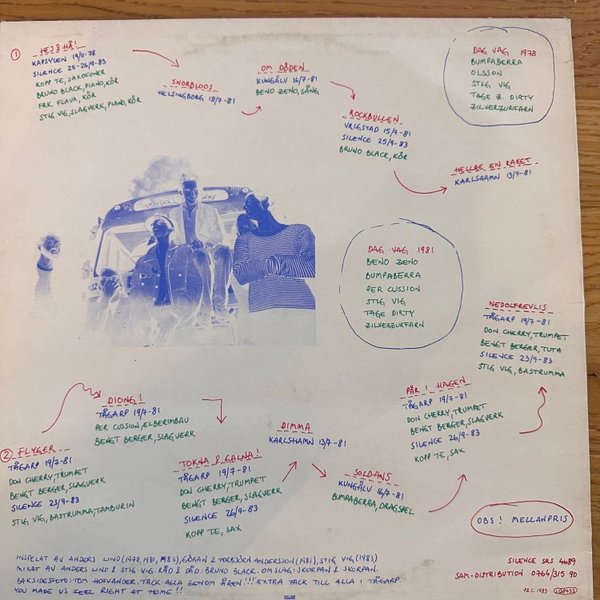 ① HEJ & HÅ!
KAPSYLEN 19/11-78
SILENCE 25-26/9-83
KOPP TE, SAXOFONER
BRUNO BLACK, PIANO, KÖR
FRK. FLAVA, KÖR
STIG VIG, SLAGVERK, PIANO, KÖR
SNORBLOOS
HELSINGBORG 18/7-81
OM DÖDEN
KUNGÄLV 16/7-81
BENO ZENO, SÅNG
ROCKBULLEN
VRIGSTAD 15/7-81
SILENCE 25/9-83
BRUNO BLACK, KÖR
HELLRE EN RAKET
KARLSHAMN 13/7-81
DAG VAG 1978
BUMPABERRA
OLSSON
STIG VIG
TAGE Z. DIRTY
ZILVERZURFARN
DAG VAG 1981
BENO ZENO
BUMPABERRA
PER CUSSION
STIG VIG
TAGE DIRTY
ZILVERZURFARN
② FLYGER
TÅGARP 19/7-81
DON CHERRY, TRUMPET
BENGT BERGER, SLAGVERK
SILENCE 23/9-83
STIG VIG, BASTRUMMA, TAMBURIN
DIONG!
TÅGARP 19/7-81
PER CUSSION, ELBERIMBAU
BENGT BERGER, SLAGVERK
TOKNA & GALNA!
TÅGARP 19/7-81
DON CHERRY, TRUMPET
BENGT BERGER, SLAGVERK
SILENCE 26/9-83
KOPP TE, SAX
DIMMA
KARLSHAMN 13/7-81
SOLDANS
KUNGÄLV 16/7-81
BUMPABERRA, DRAGSPEL
PÅR I HAGEN
TÅGARP 19/7-81
DON CHERRY, TRUMPET
BENGT BERGER, SLAGVERK
SILENCE 26/9-83
KOPP TE, SAX
TÅGARP 19/7-81
DON CHERRY, TRUMPET
BENGT BERGER, TUTA
SILENCE 23/9-83
STIG VIG, BASTRUMMA
OBS! MELLANPRIS
INSPELAT AV ANDERS LIND (1978, 1981, 1983), GÖRAN & TORBJÖRN ANDERSSON (1981), STIG VIG (1983)
MIXAT AV ANDERS LIND & STIG VIG. RÅD & DÅD: BRUNO BLACK. OMSLAG: SKORPAN & SKORPAN.
BAKSIDESFOTO: TOM HOFVANDER. TACK ALLA GENOM ÅREN!!! EXTRA TACK TILL ALLA I TÅGARP.
YOU MADE US FEEL RIGHT AT HOME!!
SILENCE SRS 4689
SAM-DISTRIBUTION 0764/315 90